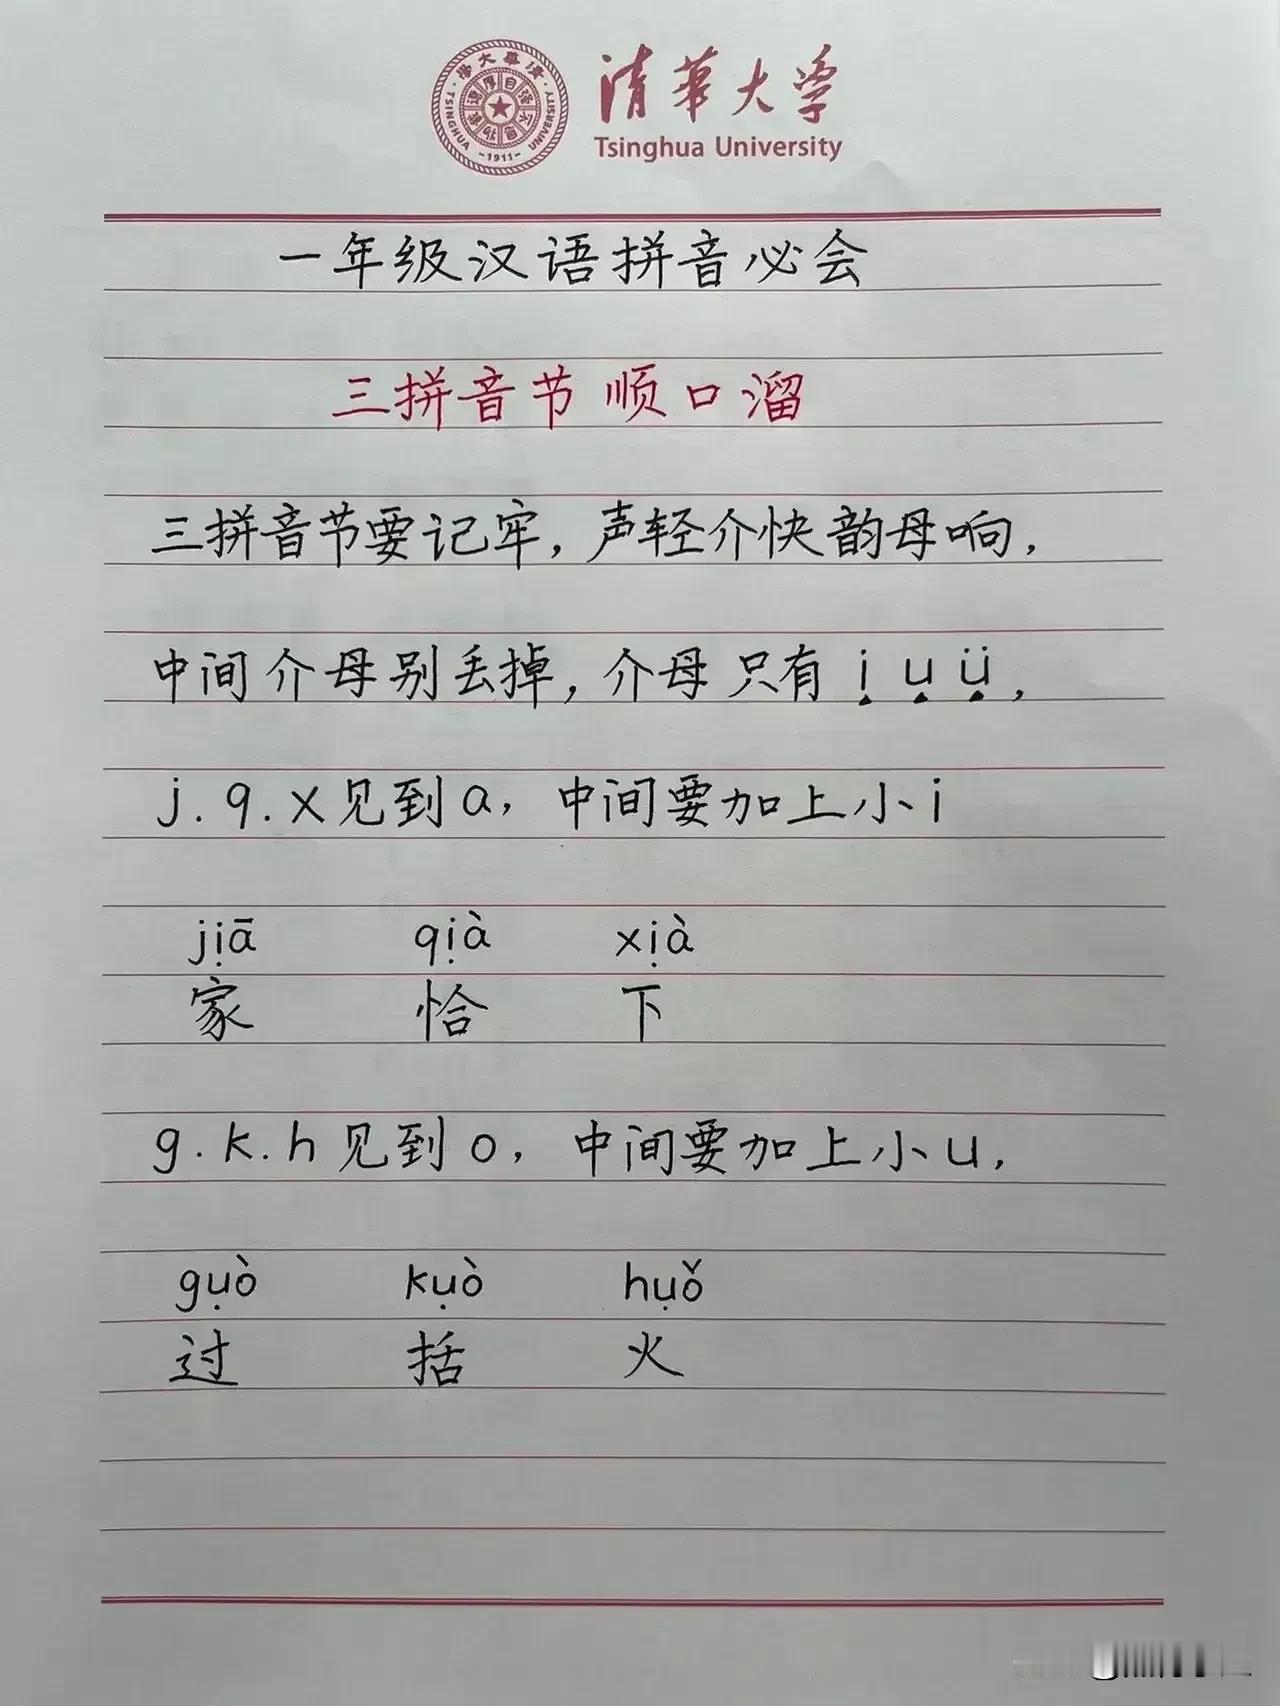 清華大学
Tsinghua University
TSINGHUA UNIVERSITY
-1911-
一年级汉语拼音必会
三拼音节顺口溜
三拼音节要记牢，声轻介快韵母响，
中间介母别丢掉，介母只有 i u ü，
j.q.x见到a，中间要加上小i
jiā qià xià
家 恰 下
g.k.h见到o，中间要加上小u，
guò kuò huǒ
过 括 火